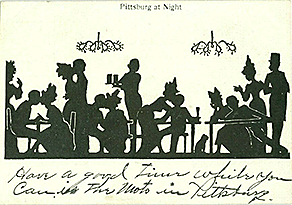 Pittsburg at Night
Have a good Time while you
Can is The Moto in Pittsburg.